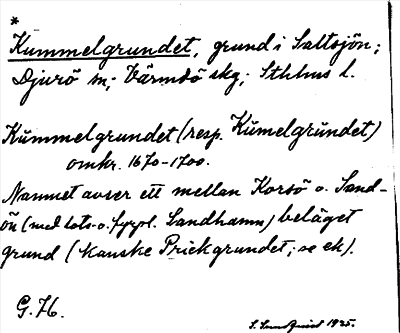 *
Kummelgrundet, grund i Saltsjön;
Djurö sn; Värmdö skg; Sthlms l.
Kŭmmelgrundet (resp. Kŭmelgrŭndet)
omkr. 1670-1700.
Namnet avser ett mellan Korsö o. Sand-
ön (med lots- o. fyrpl. Sandhamn) beläget
grund (kanske Prickgrundet; se ek).
G. H.
S. Sundquist 1925.